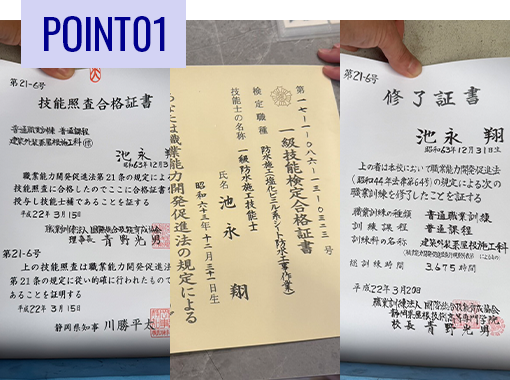 POINT01
第21-6号
技能照査合格証書
普通職業訓練 普通課程
池永 翔
昭和63年12月31日生
職業能力開発促進法第21条の規定によ
技能照査に合格したのでここに合格証書
授与し技能士補であることを証する
平成22年3月15日
理事長 青野光男
第21-6号
上の技能照査は職業能力開発促進
第21条の規定に従い的確に行われたもので
あることを証明する
平成22年3月15日
静岡県知事 川勝平太
第一七-一-一〇八六-一三-〇三二三号
一級技能検定合格証書
検定職種 防水施工塩化ビニル系シート防水工事作業
技能士の名称 一級防水施工技能士
氏名 池永 翔
昭和六十三年十二月三十一日生
は職業能力開発促進法の規定による
第21-6号
修了証書
池永 翔
昭和63年12月31日生
上の者は本校において職業能力開発促進法
(昭和44年法律第64号)の規定による次の
職業訓練を修了したことを証する
職業訓練の種類 普通職業訓練
訓練課程 普通課程
訓練科の名称 建築外装屋根施工科
総訓練時間 3,675時間
平成22年3月20日
校長 青野光男